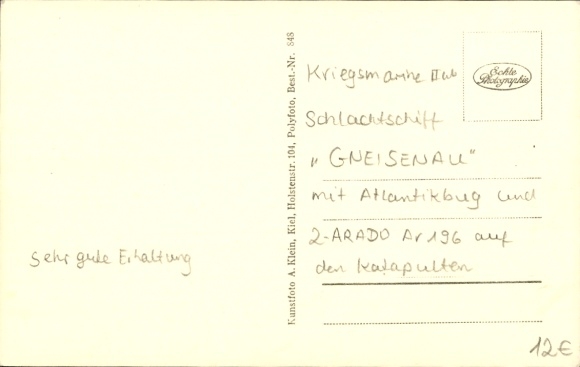 Kriegsmarine II wk
Schlachtschiff
„GNEISENAU"
mit Atlantikbug und
2-ARADO Ar 196 auf
den Katapulten
Sehr gute Erhaltung
12€
Echte
Photographie
Kunstfoto A. Klein, Kiel, Holstenstr. 104, Polyfoto, Best.-Nr. 848